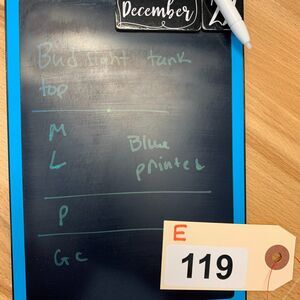 December
Bud light tank
top
M
L
Blue
printed
P
GC
E
119